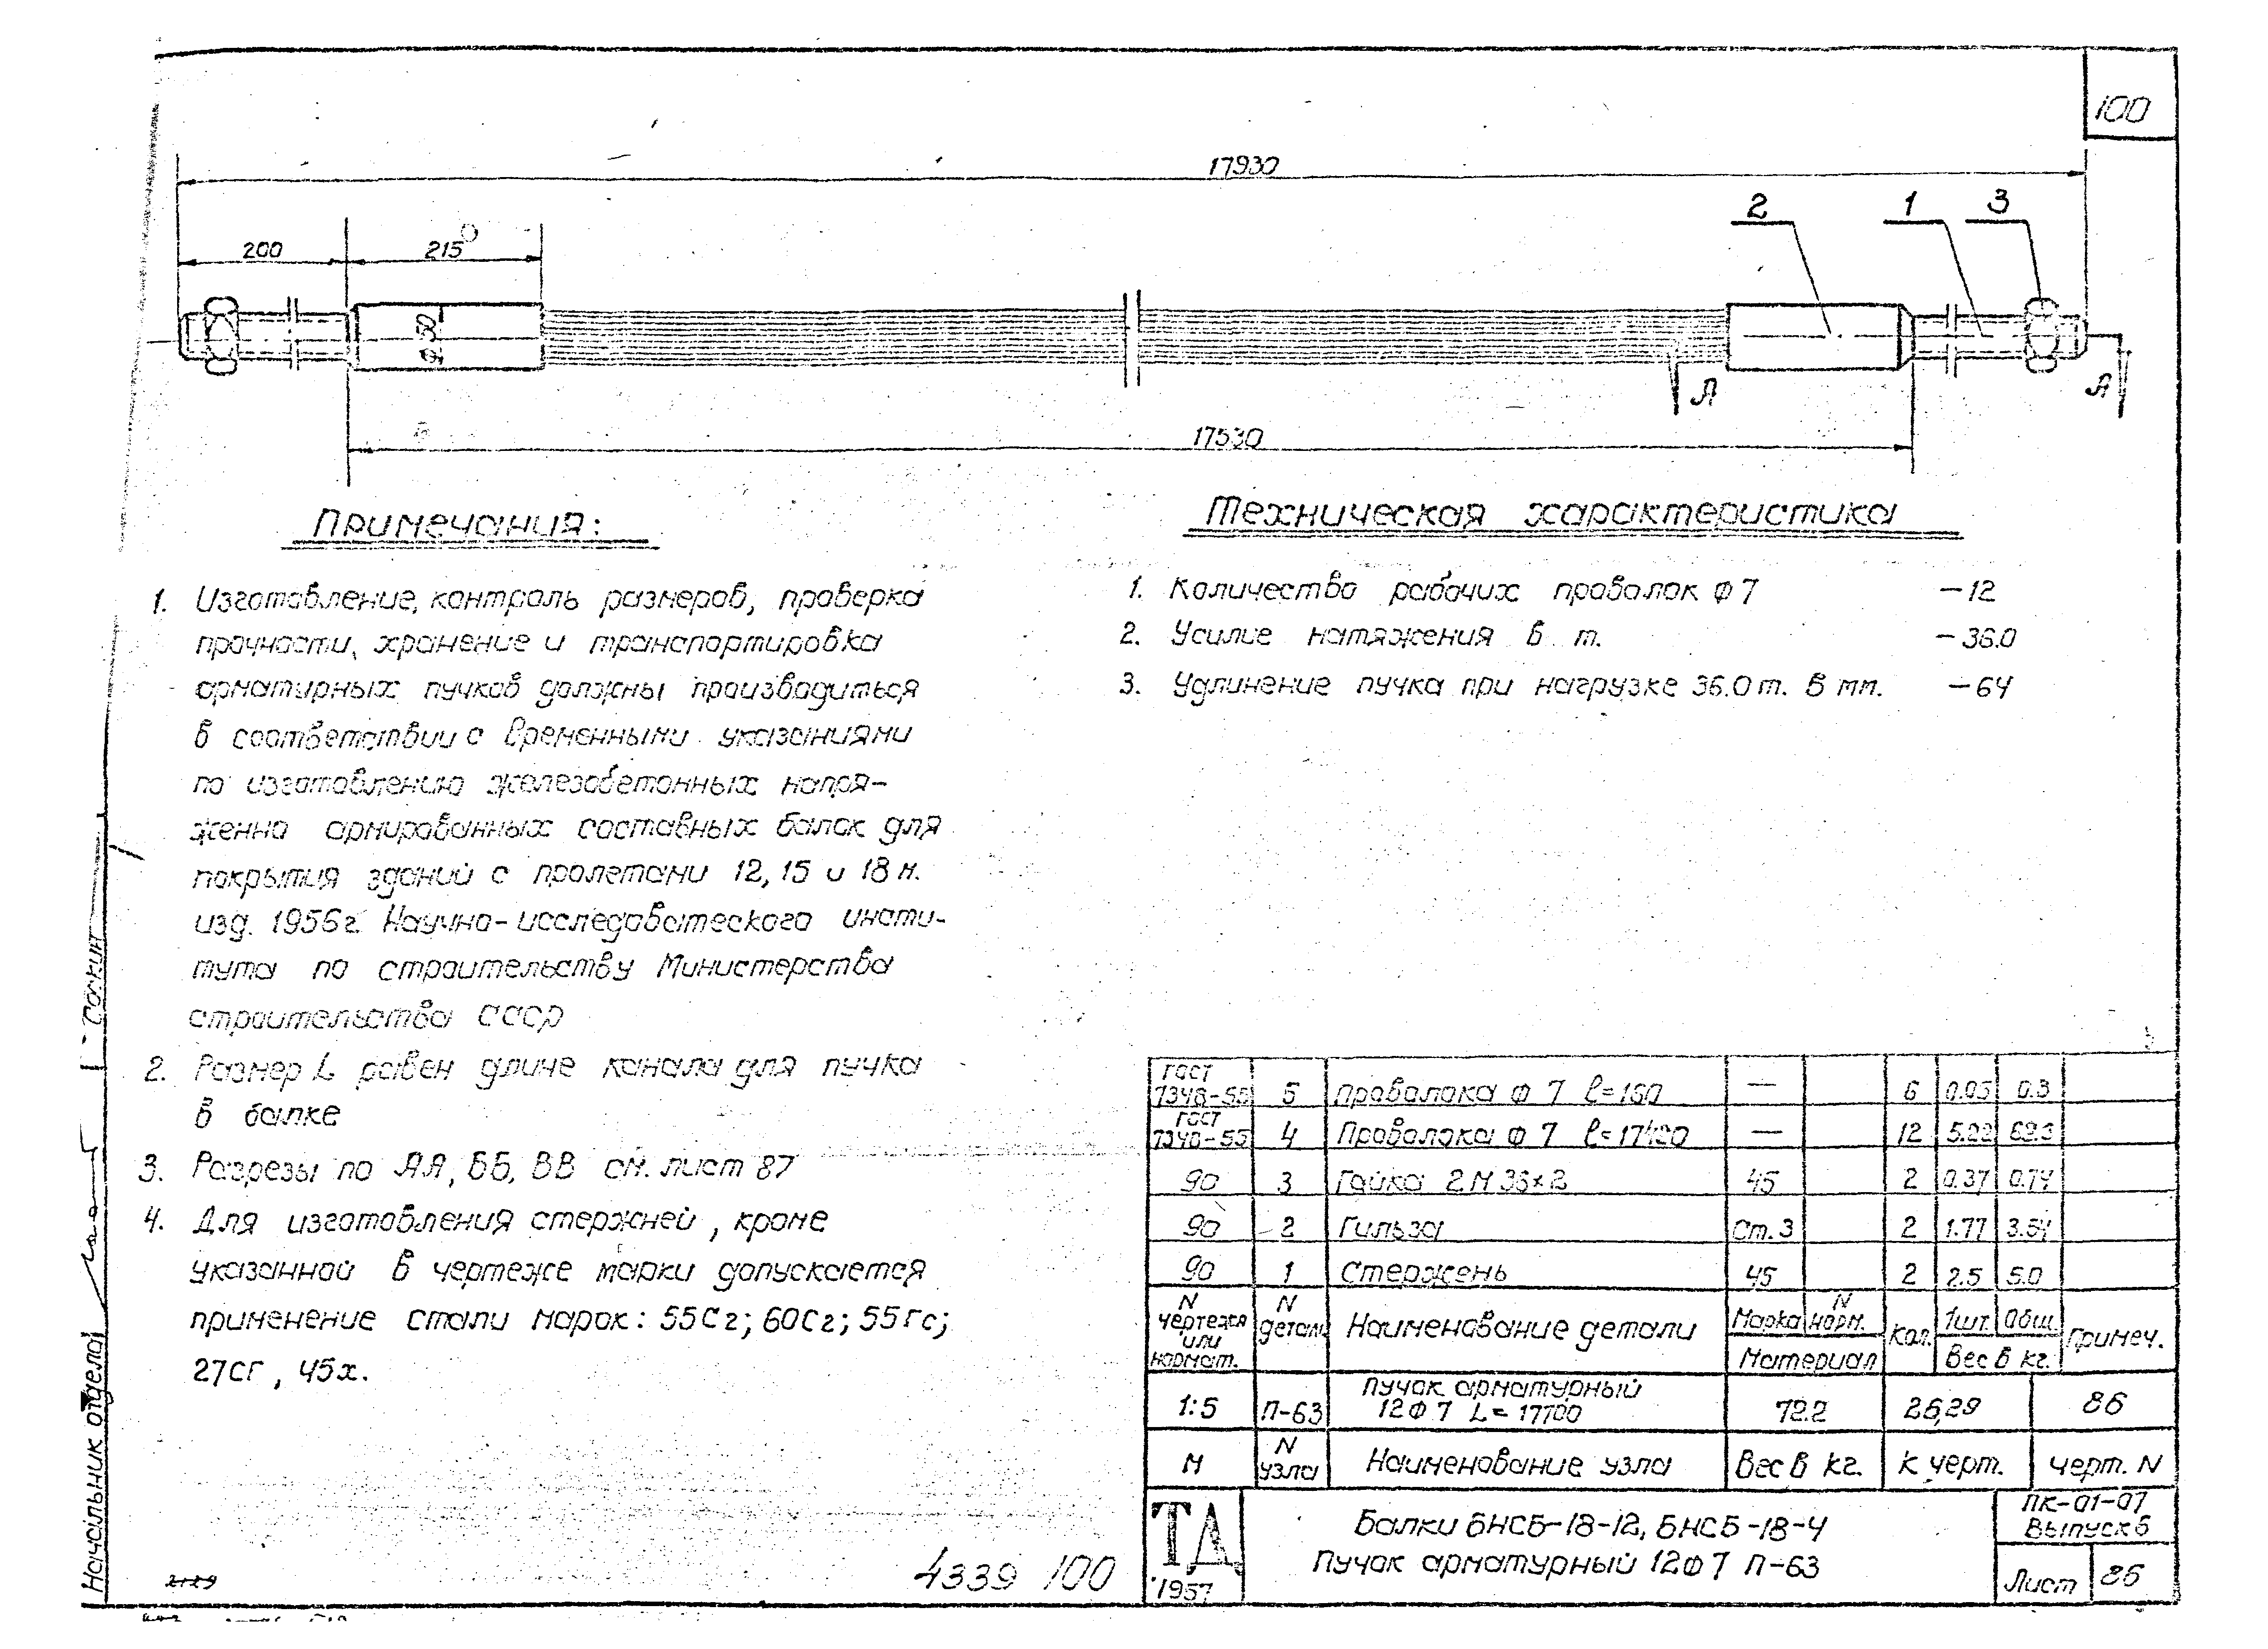 100
17930
2
1
3
200
215
Ф 50
А
А
17530
Примечания:
1. Изготовление, контроль размеров, проверка
прочности, хранение и транспортировка
арматирных пучков должны производиться
в соответствии с временными указаниями
по изготовлению железобетонных напря-
женно армированных составных балок для
покрытия зданий с пролетами 12, 15 и 18 м.
изд. 1956г. Научно-исследоватеского инсти-
тута по строительству Министерства
строительства СССР
2. Размер L равен длине канала для пучка
в балке
3. Разрезы по АА, ББ, ВВ см. лист 87
4. Для изготовления стержней, кроме
указанной в чертеже марки допускается
применение стали марок: 55Сг; 60Сг; 55Гс;
27СГ, 45х.
Техническая характеристика
1. Количество рабочих проволок Ф 7 – 12
2. Усилие натяжения в т. – 36.0
3. Удлинение пучка при нагрузке 36.0 т. в мм. – 64
ГОСТ 7348-55 5 Проволока Ф 7 l=160 — 6 0.05 0.3
ГОСТ 7348-55 4 Проволока Ф 7 l=17420 — 12 5.22 62.5
90 3 Гайка 2М 36×2 45 2 0.37 0.74
90 2 Гильза Ст.3 2 1.77 3.54
90 1 Стержень 45 2 2.5 5.0
N чертежа или нормат. N детали Наименование детали Марка N норм. Материал Кол. 1шт. Общ. Вес в кг. Примеч.
1:5 П-63 Пучок арматурный 12Ф7 L=17700 72.2 26,29 86
М N узла Наименование узла Вес в кг. К черт. черт. N
ТД 1957
Балки БНСБ-18-12, БНСБ-18-4
Пучок арматурный 12Ф7 П-63
ПК-01-07
Выпуск 6
Лист 86
4339 /100
2129
Начальник отдела